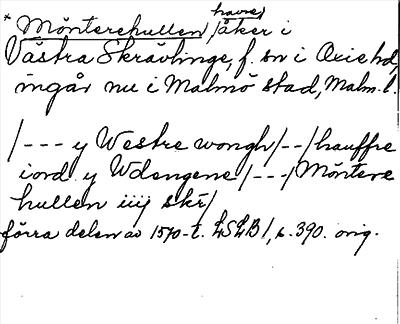 * Mönterehullen, havreåker i
Västra Skrävlinge, f. sn i Oxie hd,
ingår nu i Malmö stad, Malm. l.
/--- y Westre wongh/--/hauffre
iord y Wdengene/---/Möntere
hullen iiij skr/
förra delen av 1570-t. LSLB 1, s. 390. orig.